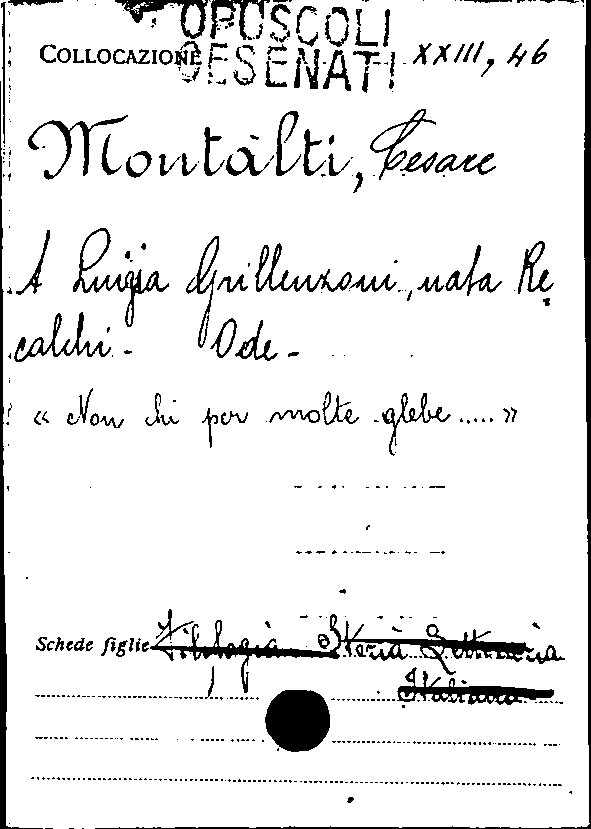 OPUSCOLI
COLLOCAZIONE CESENATI XXIII, 46
Montalti, Cesare
A Luigia Grillenzoni, nata Re
calchi - Ode -
« Non chi per molte glebe ..... »
Schede figlie Filologia Storia Letteraria
Italiana